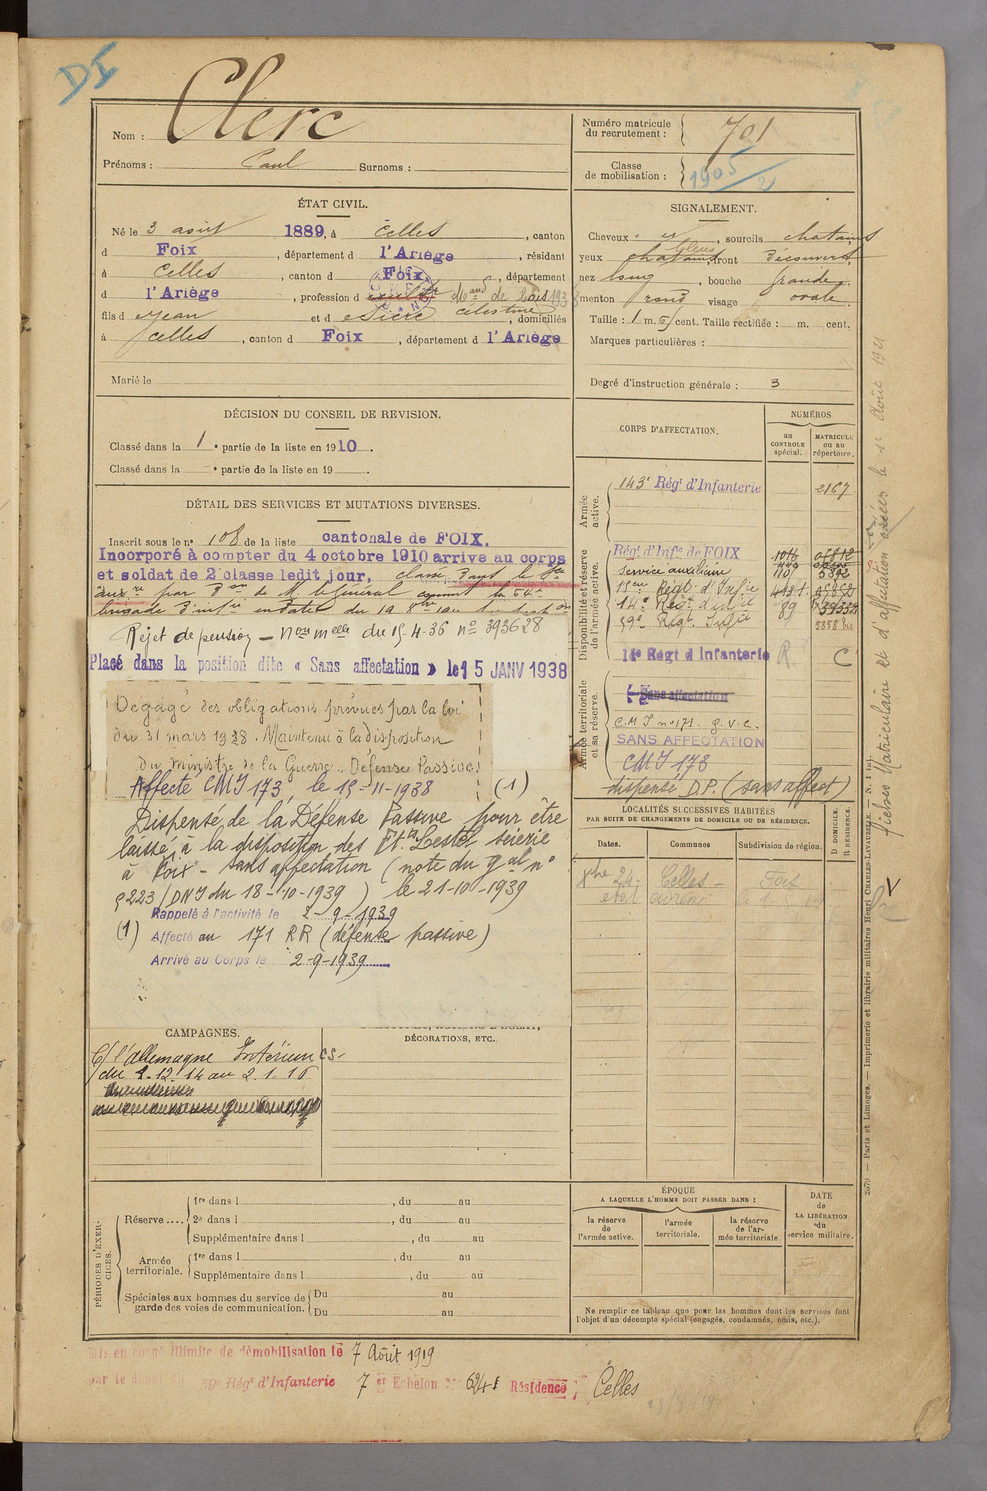 DI
Nom : Clerc
Prénoms : Paul Surnoms :
Numéro matricule du recrutement : 701
Classe de mobilisation : 1905/2
ÉTAT CIVIL.
Né le 3 août 1889, à Celles, canton
d Foix, département d l'Ariège, résidant
à Celles, canton d Foix, département
d l'Ariège, profession d cult^r M^and de bois 1938
fils d Jean et d Sicre Célestine, domiciliés
à Celles, canton d Foix, département d l'Ariège
Marié le
SIGNALEMENT.
Cheveux, sourcils chatains
yeux chatains bleus, front découvert,
nez long, bouche grande,
menton rond visage ovale.
Taille : 1 m. cent. Taille rectifiée : m. cent.
Marques particulières :
Degré d'instruction générale : 3
DÉCISION DU CONSEIL DE REVISION.
Classé dans la 1^e partie de la liste en 1910.
Classé dans la ^e partie de la liste en 19
DÉTAIL DES SERVICES ET MUTATIONS DIVERSES.
Inscrit sous le n° 108 de la liste cantonale de FOIX.
Incorporé à compter du 4 octobre 1910 arrive au corps
et soldat de 2^e classe ledit jour, classé dans le S^ce
aux^re par D^on de M. le Général comm^t la
brigade
Rejet de pension – N^on M^elle du 15.4.36 n° 393628
Placé dans la position dite « Sans affectation » le 15 JANV 1938
Dégagé des obligations prévues par la loi
du 31 mars 1928. Maintenu à la disposition
du Ministre de la Guerre. Défense Passive.
Affecté CMI 173, le 15-11-1938 (1)
Dispensé de la Défense Passive pour être
laissé à la disposition des Et^ts Lestel scierie
à Foix - sans affectation (note du g^al n°
9223/DMI du 18-10-1939) le 21-10-1939
Rappelé à l'activité le 2-9-1939
(1) Affecté au 171 RR (défense passive)
Arrivé au Corps le 2-9-1939
CORPS D'AFFECTATION.
NUMÉROS
au CONTROLE spécial.
MATRICULE ou au répertoire.
Armée active.
143^e Rég^t d'Infanterie 2167
Disponibilité et réserve de l'armée active.
Rég^t d'Inf^ie de FOIX
Service auxiliaire
14^e Rég^t d'Inf^ie 89
59^e Rég^t Inf^ie
14^e Régt d Infanterie R C
Armée territoriale et sa réserve.
Sans affectation
C.M.I n° 171. G.V.C.
SANS AFFECTATION
CMI 173
dispensé D.P. (sans affect)
LOCALITÉS SUCCESSIVES HABITÉES
PAR SUITE DE CHANGEMENTS DE DOMICILE OU DE RÉSIDENCE.
Dates. Communes Subdivision de région. D DOMICILE R RÉSIDENCE.
Celles - Foix
CAMPAGNES.
C/ l'allemagne Intérieur CS.
du 2.12.14 au 2.1.16
DÉCORATIONS, ETC.
PÉRIODES D'EXERCICES.
Réserve....
1^re dans l , du au
2^e dans l , du au
Supplémentaire dans l , du au
Armée territoriale.
1^re dans l , du au
Supplémentaire dans l , du au
Spéciales aux hommes du service de garde des voies de communication.
Du au
Du au
ÉPOQUE
A LAQUELLE L'HOMME DOIT PASSER DANS :
la réserve de l'armée active.
l'armée territoriale.
la réserve de l'armée territoriale
DATE de LA LIBÉRATION du service militaire.
Ne remplir ce tableau que pour les hommes dont les services font
l'objet d'un décompte spécial (engagés, condamnés, omis, etc.).
Mis en congé illimité de démobilisation le 7 Août 1919
par le dépôt 59^e Rég^t d'Infanterie 7^er Echelon N° 624 Résidence : Celles
Paris et Limoges. — Imprimerie et librairie militaires Henri CHARLES-LAVAUZELLE.
Fiches Matriculaire et d'affectation créées le 1^er Août 1921